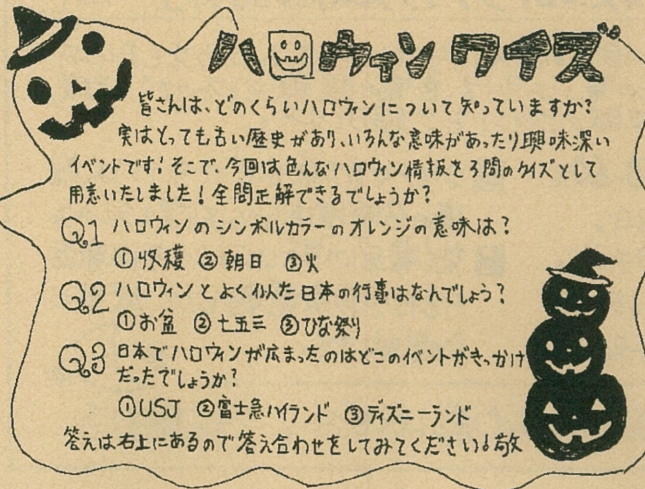 ハロウィンクイズ
皆さんは、どのくらいハロウィンについて知っていますか?
実はとっても古い歴史があり、いろんな意味があったり興味深い
イベントです!そこで、今回は色んなハロウィン情報を3問のクイズとして
用意いたしました!全問正解できるでしょうか?
Q1 ハロウィンのシンボルカラーのオレンジの意味は?
①収穫 ②朝日 ③火
Q2 ハロウィンとよく似た日本の行事はなんでしょう?
①お盆 ②七五三 ③ひな祭り
Q3 日本でハロウィンが広まったのはどこのイベントがきっかけ
だったでしょうか?
①USJ ②富士急ハイランド ③ディズニーランド
答えは右上にあるので答え合わせをしてみてください!敬